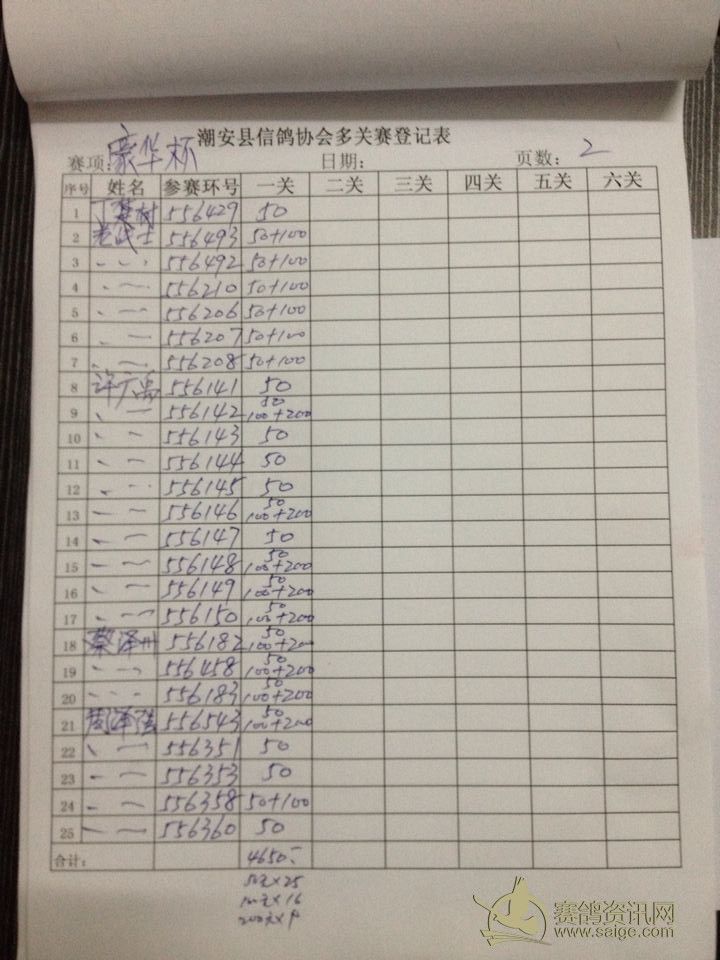 潮安县信鸽协会多关赛登记表
赛项:豪华杯 日期: 页数: 2
序号 姓名 参赛环号 一关 二关 三关 四关 五关 六关
1 丁 556429 50
2 老战士 556493 50+100
3 〃 556492 50+100
4 〃 556210 50+100
5 〃 556206 50+100
6 〃 556207 50+100
7 〃 556208 50+100
8 许 556141 50
9 〃 556142 50 100+200
10 〃 556143 50
11 〃 556144 50
12 〃 556145 50
13 〃 556146 50 100+200
14 〃 556147 50
15 〃 556148 50 100+200
16 〃 556149 50 100+200
17 〃 556150 50 100+200
18 蔡泽州 556182 50 100+200
19 〃 556458 50 100+200
20 〃 556183 50 100+200
21 周泽强 556543 50 100+200
22 〃 556351 50
23 〃 556353 50
24 〃 556358 50+100
25 〃 556360 50
合计: 4650-
50元×25
100元×16
200元×9
赛鸽资讯网
www.saige.com